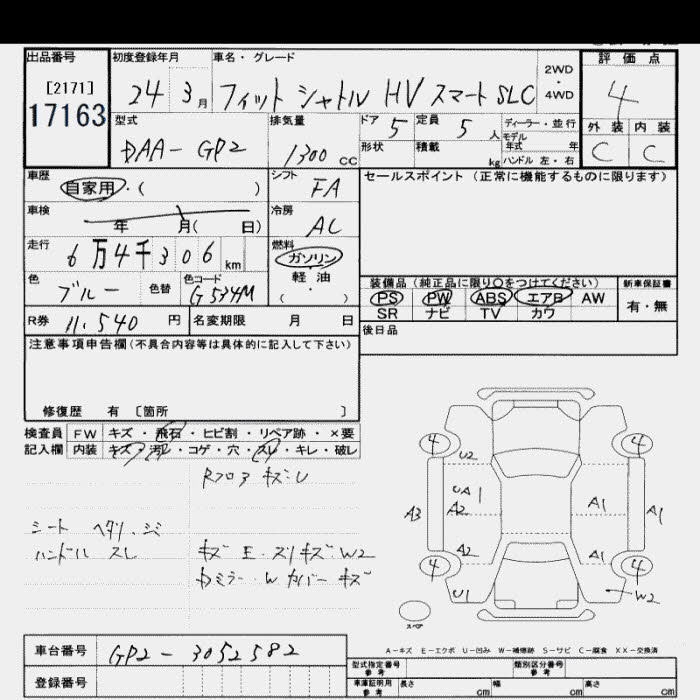 出品番号 初度登録年月 車名・グレード 評価点
[2171]
17163
24 3月 フィット シャトル HV スマート SLC 2WD・4WD 4
型式 排気量 ドア 5 定員 5人 ディーラー・並行
モデル年式 年
外装 内装
DAA-GP2 1300 CC 形状 積載 kg ハンドル 左・右 C C
車歴 自家用・( ) シフト FA セールスポイント (正常に機能するものに限ります)
車検 年 月( 日) 冷房 AC
走行 6万4千306 km 燃料 ガソリン・軽油・( )
色 ブルー 色替 色コード G534M
装備品 (純正品に限り○をつけてください) 新車保証書
PS PW ABS エアB AW 有・無
SR ナビ TV カワ
R券 11,540 円 名変期限 月 日 後日品
注意事項申告欄(不具合内容等は具体的に記入して下さい)
修復歴 有 〔箇所 〕
検査員 FW キズ・飛石・ヒビ割・リペア跡・×要
記入欄 内装 キズ・汚レ・コゲ・穴・スレ・キレ・破レ
Rフロア キズU
シート ヘタリ、シミ
ハンドル スレ
キズ E・スリキズW2
カバー キズ
4 4
U2
UA1
A3 A2 A1 A1
A2 A1
4 4
U1 W2
スペア
A-キズ E-エクボ U-凹み W-補修跡 S-サビ C-腐食 XX-交換済
車台番号 GP2-3052582
登録番号
型式指定番号 参考 類別区分番号 参考
車庫証明用 参考 長さ cm 幅 cm 高さ cm